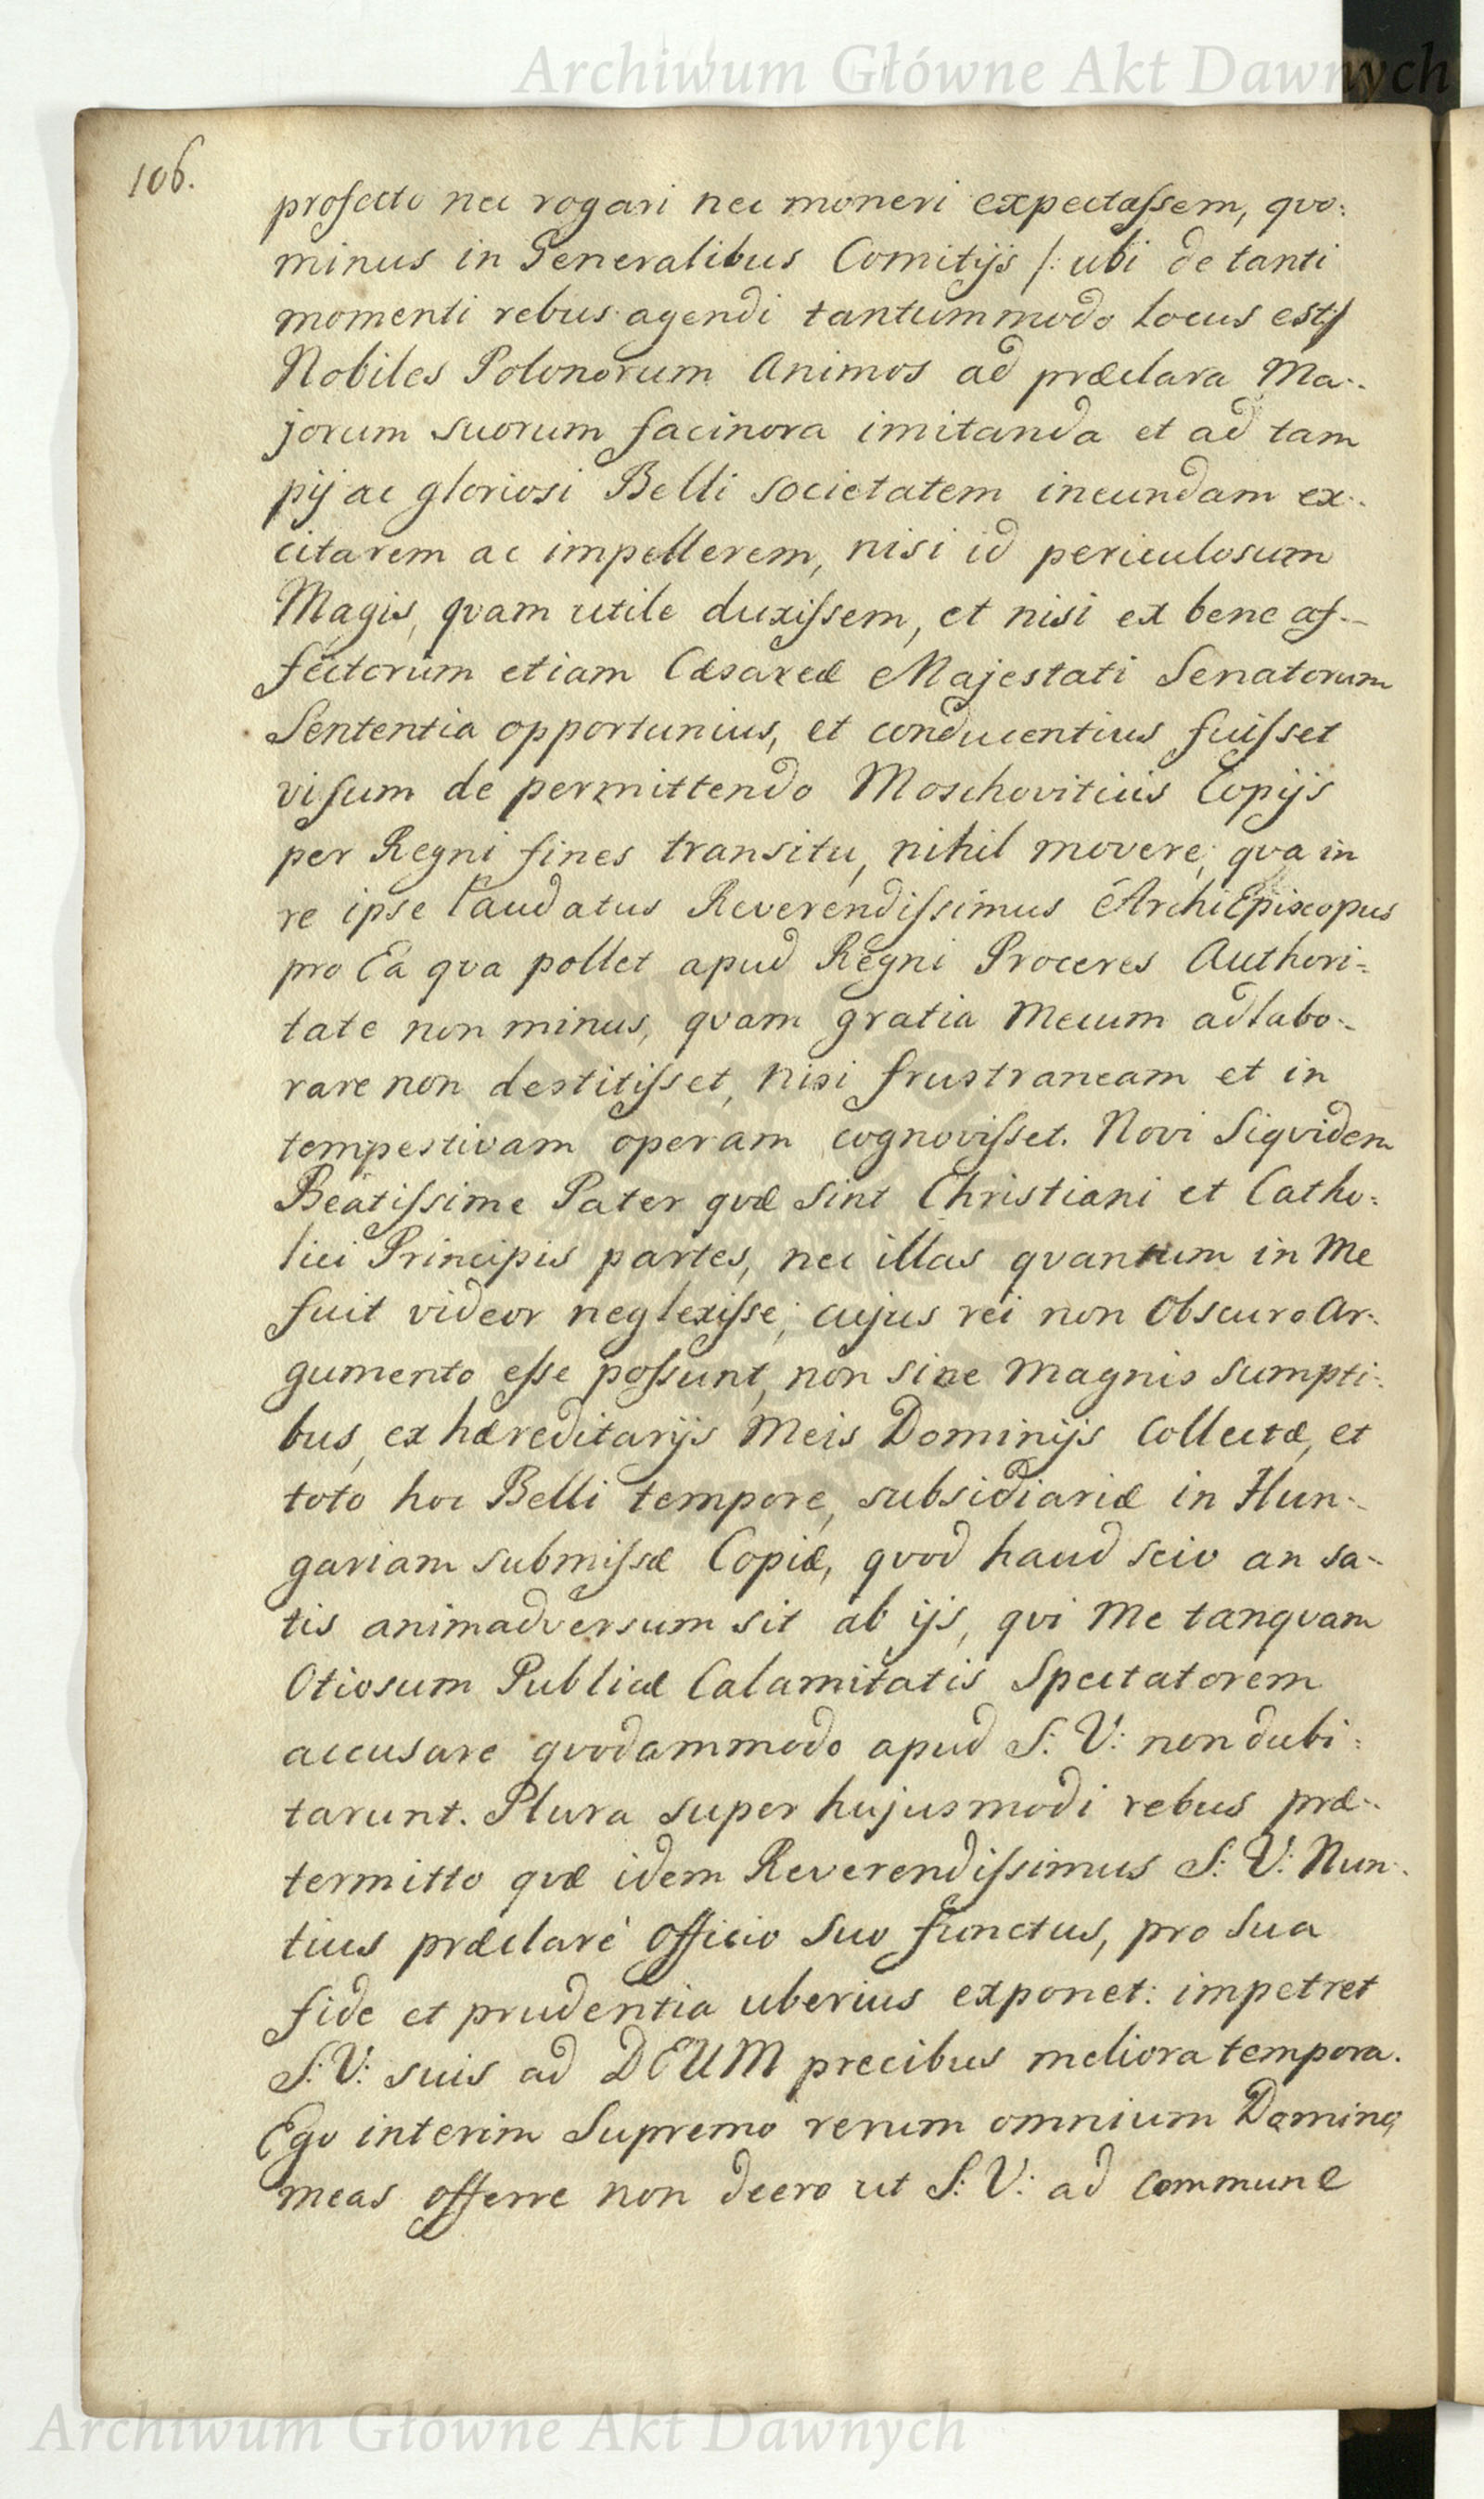 Archiwum Główne Akt Dawnych
106.
profecto nec rogari nec moneri expectassem, quo:
minus in Generalibus Comitijs /: ubi de tanti
momenti rebus agendi tantummodo Locus est:/
Nobiles Polonorum Animos ad præclara Ma:
jorum suorum facinora imitanda et ad tam
pij ac gloriosi Belli societatem ineundam ex:
citarem ac impellerem, nisi id periculosum
Magis, quam utile duxissem, et nisi ex bene af-
fectorum etiam Cæsareæ Majestati Senatorum
Sententia opportunius, et conducentius fuisset
visum de permittendo Moschoviticis Copijs
per Regni fines transitu, nihil movere; qua in
re ipse laudatus Reverendissimus ArchiEpiscopus
pro Ea qua pollet apud Regni Proceres Authori=
tate non minus, quam gratia Mecum adlabo:
rare non destitisset, Nisi frustraneam et in
tempestivam operam cognovisset. Novi Siquidem
Beatissime Pater quæ Sint Christiani et Catho:
lici Principis partes, nec illas quantum in Me
fuit videor neglexisse; cujus rei non Obscuro Ar:
gumento esse possunt, non sine Magnis sumpti:
bus, ex hæreditarijs Meis Dominijs Collectæ, et
toto hoc Belli tempore, subsidiariæ in Hun:
gariam submissæ Copiæ, quod haud scio an sa-
tis animadversum sit ab ijs, qui Me tanquam
Otiosum Publicæ Calamitatis Spectatorem
accusare quodammodo apud S: V: non dubi:
tarunt. Plura super hujusmodi rebus præ:
termitto quæ idem Reverendissimus S: V: Nun:
tius præclarè Officio Suo functus, pro Sua
fide et prudentia uberius exponet: impetret
S: V: suis ad DEUM precibus meliora tempora.
Ego interim Supremo rerum omnium Domino,
meas offerre non deero ut S: V: ad commune
Archiwum Główne Akt Dawnych